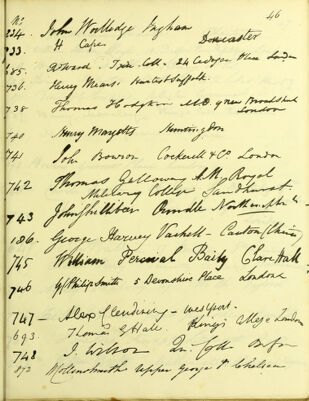 No. 46
234. John Woolledge Ingham
Doncaster
733. H Cape
685. Edward
24 Cadogan Place London
736. Henry Mears. Hartest Suffolk.
738 Thomas Hodgkin M.D. 9 New Broad Street
London
740 Henry Margetts Huntingdon
741 John Bowron Cockerell & Co London
742 Thomas Galloway A.M. Royal
Military College Sandhurst.
743 John
186. George Harvey Vachell - Canton (China)
745 William Perceval Baily Clare Hall
746 G Philip Smith 5 Devonshire Place London
747 - Alex Clendining - Westport.
693 Thomas G Hall. King's College London
748 J. Wilson Qu. Coll. Oxfor
872 upper George St Chelsea